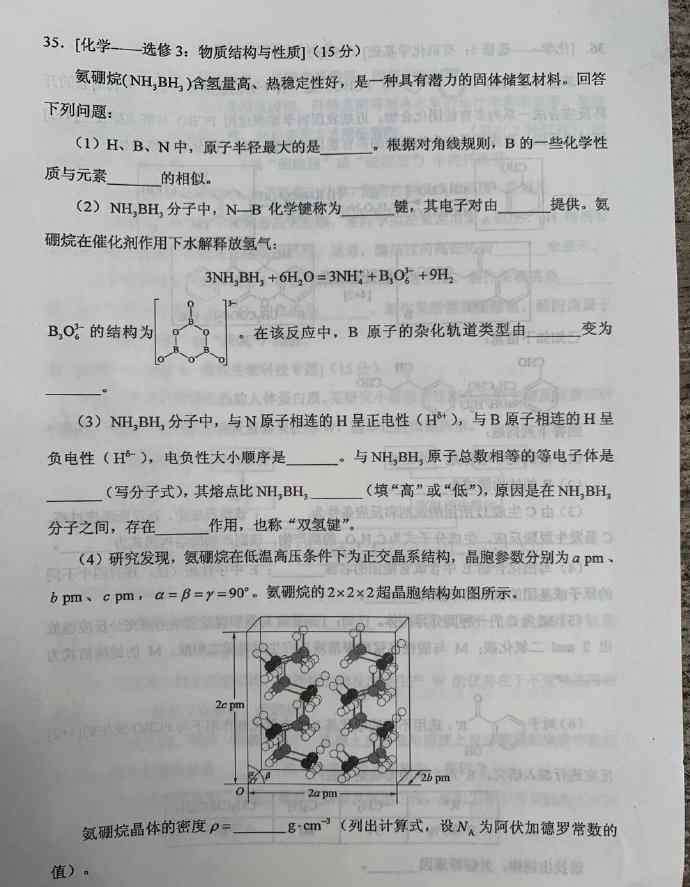 35. [化学——选修3：物质结构与性质]（15分）
氨硼烷(NH₃BH₃)含氢量高、热稳定性好，是一种具有潜力的固体储氢材料。回答
下列问题：
（1）H、B、N中，原子半径最大的是______。根据对角线规则，B的一些化学性
质与元素______的相似。
（2）NH₃BH₃分子中，N—B化学键称为______键，其电子对由______提供。氨
硼烷在催化剂作用下水解释放氢气：
3NH₃BH₃+6H₂O=3NH₄⁺+B₃O₆³⁻+9H₂
B₃O₆³⁻的结构为
O
B
O O
B B
O O O
3-
。在该反应中，B原子的杂化轨道类型由______变为
______。
（3）NH₃BH₃分子中，与N原子相连的H呈正电性（Hᵟ⁺），与B原子相连的H呈
负电性（Hᵟ⁻），电负性大小顺序是______。与NH₃BH₃原子总数相等的等电子体是
______（写分子式），其熔点比NH₃BH₃______（填“高”或“低”），原因是在NH₃BH₃
分子之间，存在______作用，也称“双氢键”。
（4）研究发现，氨硼烷在低温高压条件下为正交晶系结构，晶胞参数分别为a pm、
b pm、c pm，α=β=γ=90°。氨硼烷的2×2×2超晶胞结构如图所示。
2c pm
α γ β
2b pm
O
2a pm
氨硼烷晶体的密度ρ=______g·cm⁻³（列出计算式，设Nₐ为阿伏加德罗常数的
值）。